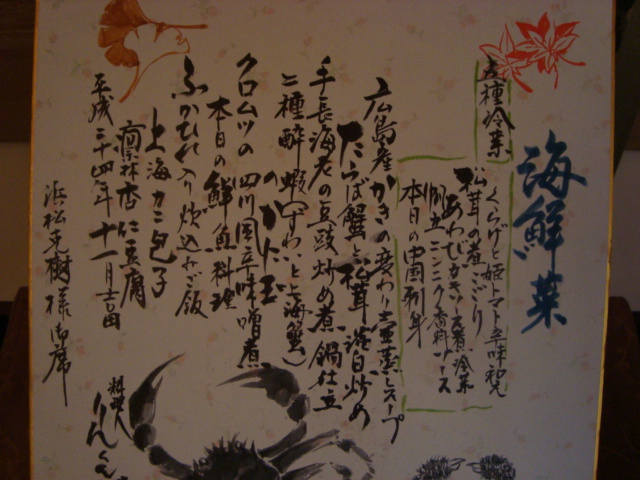 海鮮菜
五種冷菜
くらげと姫トマト辛味和え
松茸の煮こごり
あわびかきソース煮冷菜
帆立ニンニク香料ソース
本日の中国刺身
広島産かきの変わり壷蒸しスープ
たらば蟹と松茸淡白炒め
手長海老の豆豉炒め煮鍋仕立
二種酔蝦(ずわいと上海蟹)
のかに玉
クロムツの四川風辛味噌煮
本日の鮮魚料理
ふかひれ入り炊込みご飯
上海カニ包子
凛林杏仁豆腐
平成二十四年十一月吉日
浜松克樹様御席
料理人
りんくん